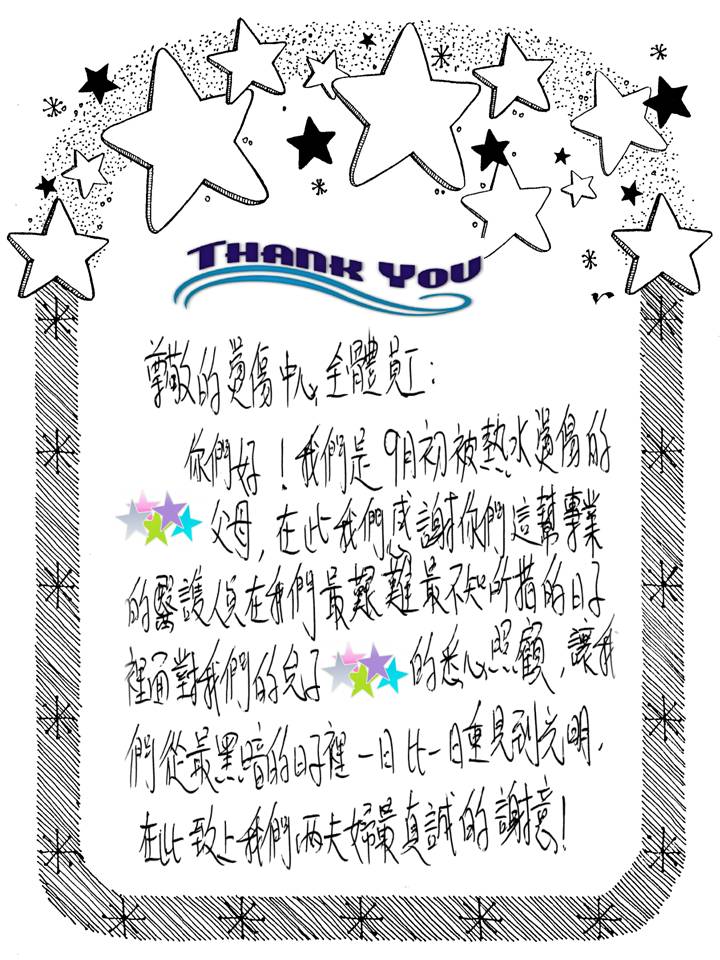 THANK YOU
尊敬的燙傷中心全體員工：
你們好！我們是9月初被熱水燙傷的
父母，在此我們感謝你們這幫專業
的醫護人員在我們最艱難最不知所措的日子
裡面對我們的兒子的悉心照顧，讓我
們從最黑暗的日子裡一日比一日重見到光明，
在此致上我們兩夫婦最真誠的謝意！